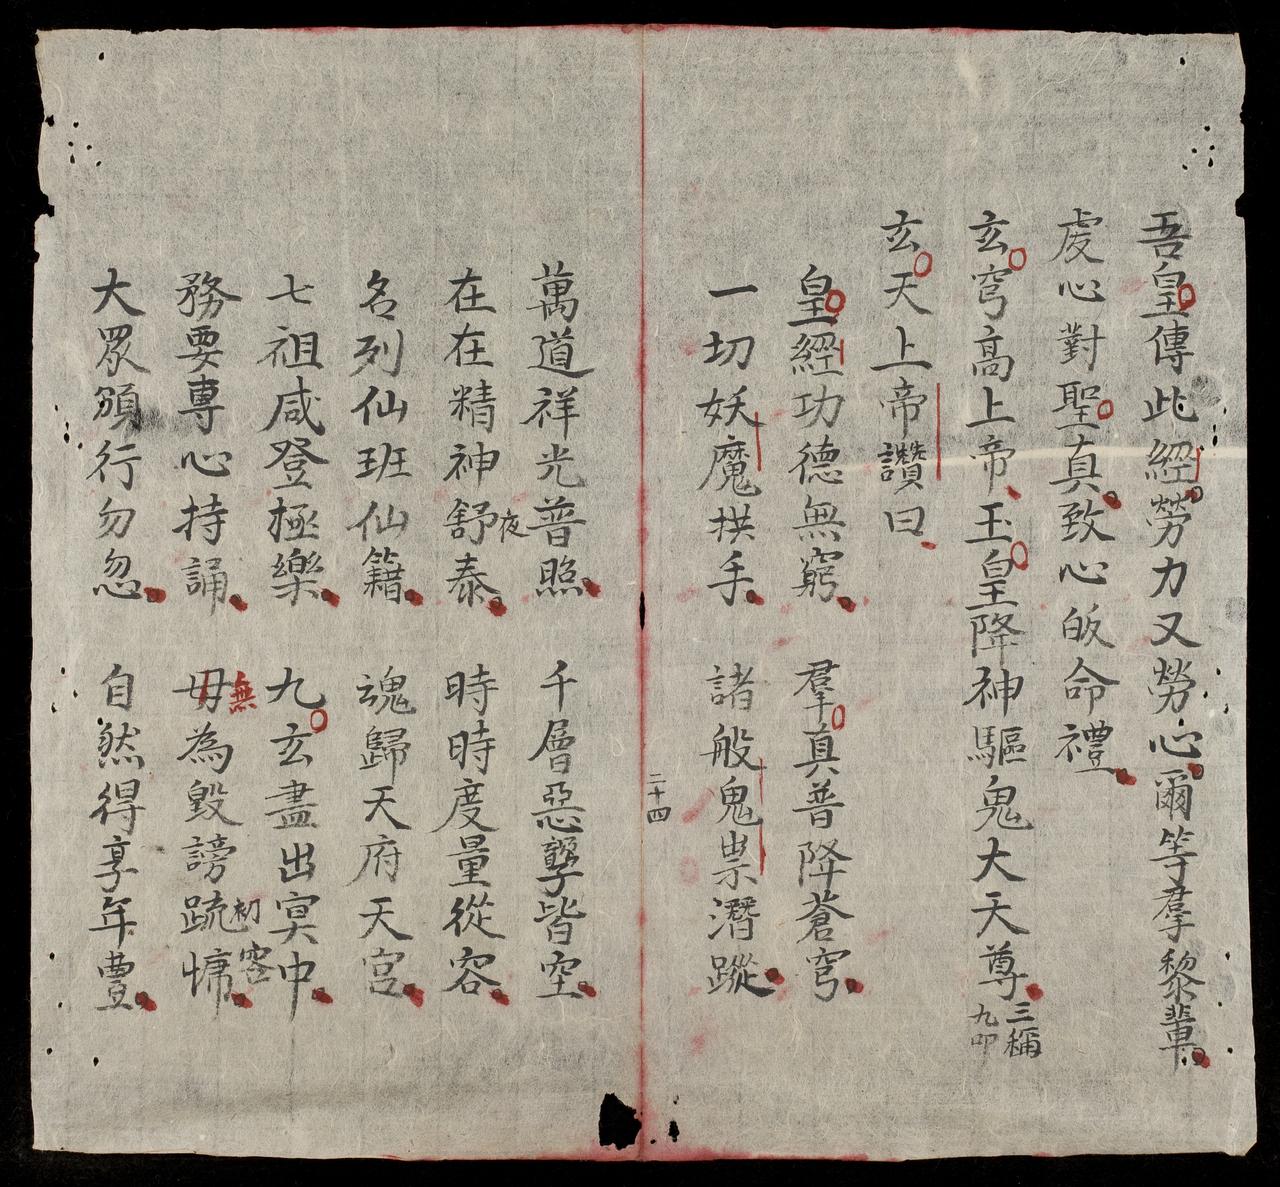 吾皇傳此經勞力又勞心爾等羣黎輩
虔心對聖真致心皈命禮
玄穹高上帝玉皇降神驅鬼大天尊 三稱 九叩
玄天上帝讚曰
皇經功德無窮 羣真普降蒼穹
一切妖魔拱手 諸般鬼祟潛蹤
二十四
萬道祥光普照 千層惡孽皆空
在在精神舒泰 時時度量從容
夜
名列仙班仙籍 魂歸天府天宮
七祖咸登極樂 九玄盡出冥中
務要專心持誦 毋為毀謗疏慵
無
初
容
大眾頒行勿忽 自然得享年豐